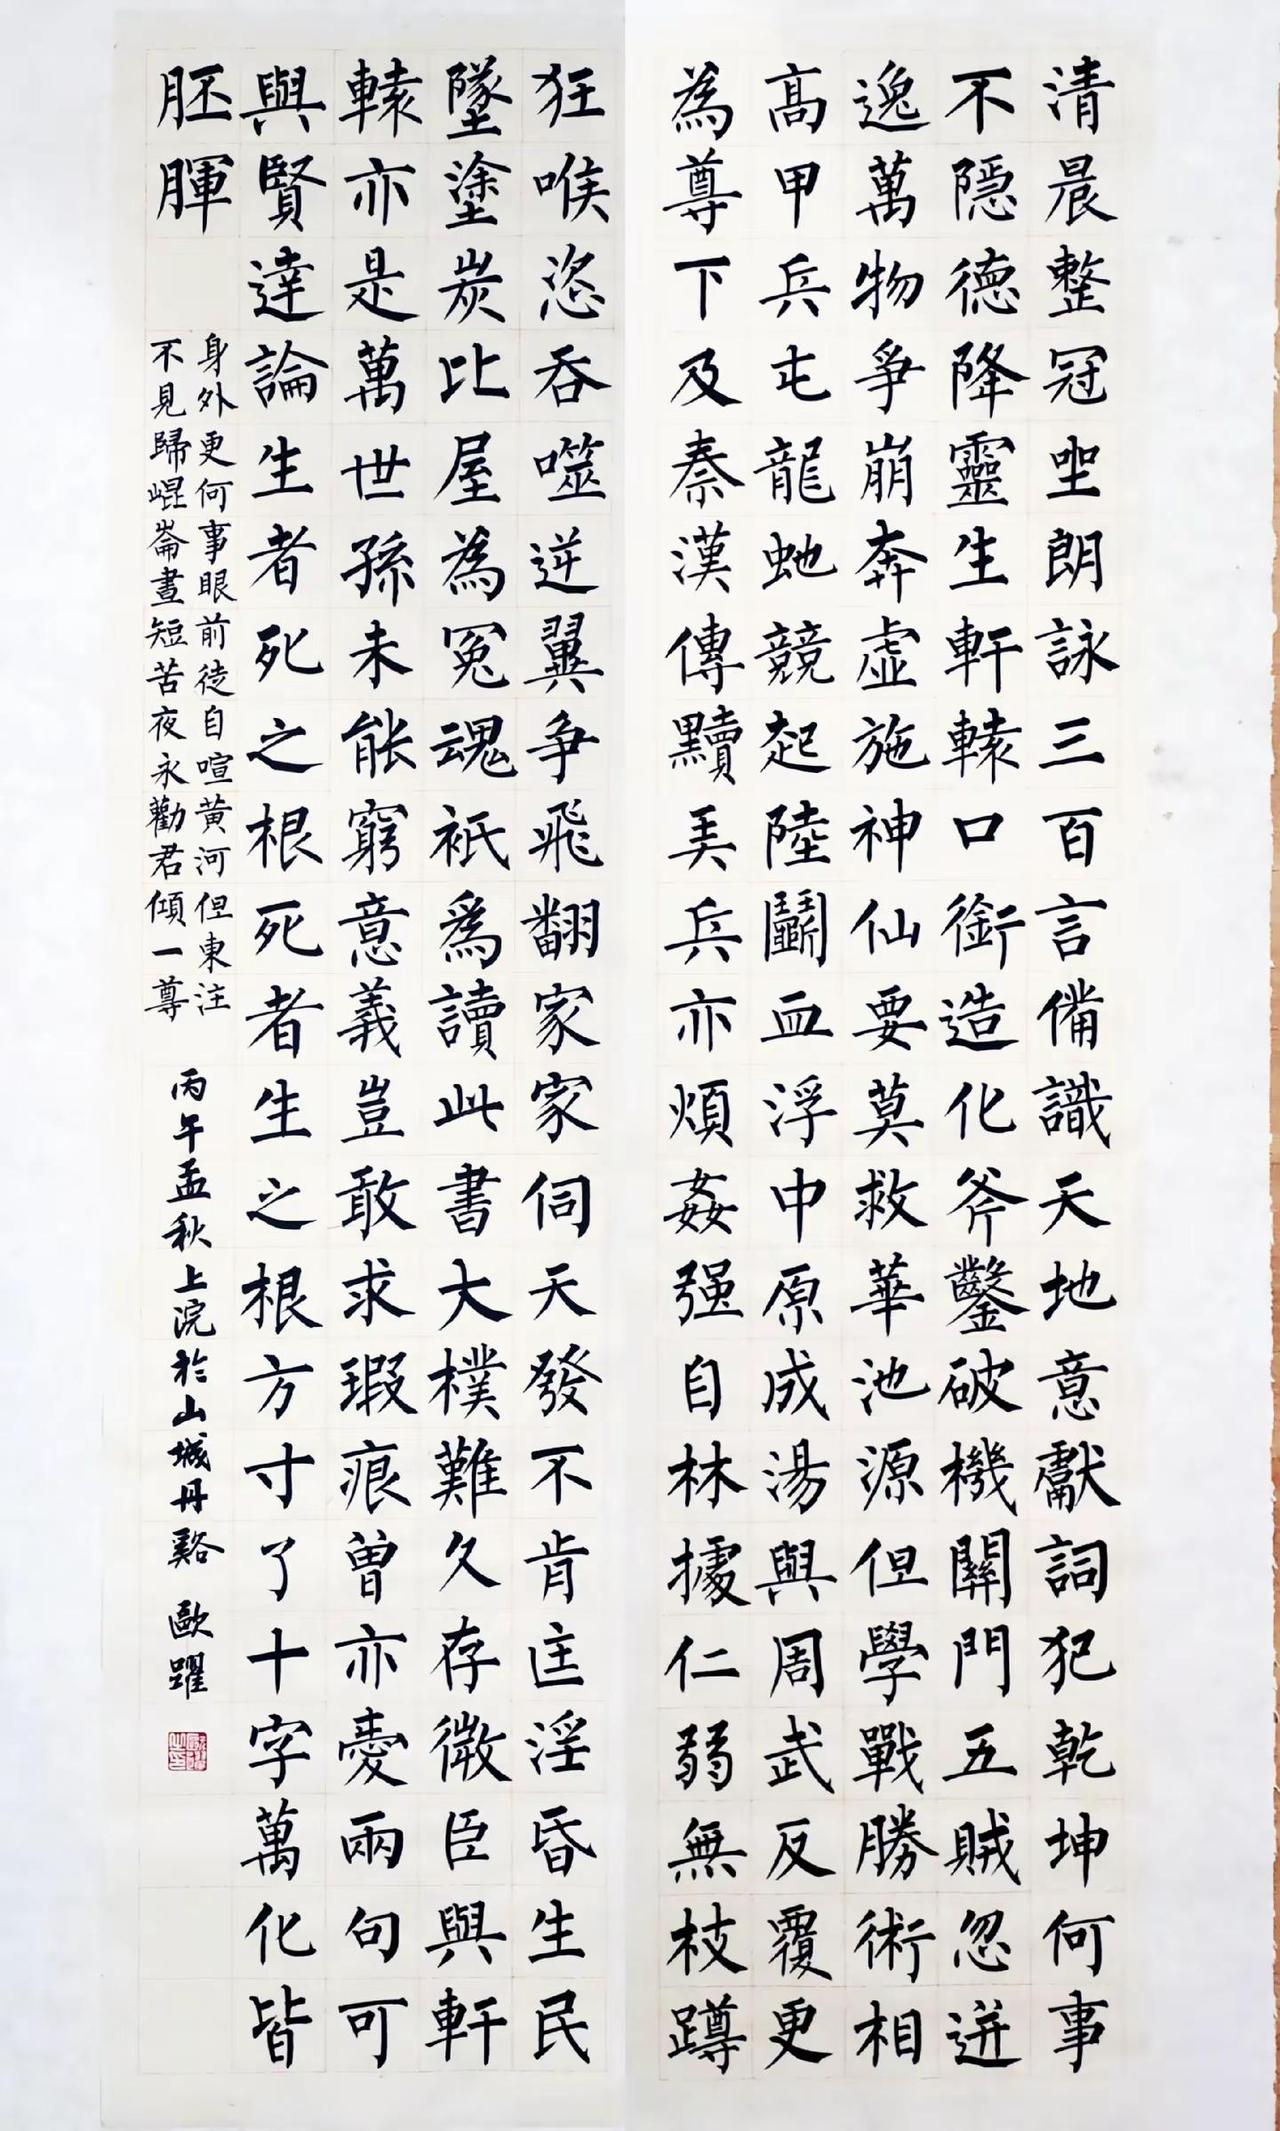 清晨整冠坐朗詠三百言備識天地意獻詞犯乾坤何事
不隱德降靈生軒轅口銜造化斧鑿破機關門五賊忽迸
逸萬物爭崩奔虛施神仙要莫救華池源但學戰勝術相
高甲兵屯龍虵競起陸鬭血浮中原成湯與周武反覆更
為尊下及秦漢傳黷美兵亦煩姦强自林據仁弱無枝蹲
狂喉恣吞噬逆翼爭飛翻家家伺天發不肯匡淫昏生民
墜塗炭比屋為冤魂祇為讀此書大樸難久存微臣與軒
轅亦是萬世孫未能窮意義豈敢求瑕痕曾亦愛兩句可
與賢達論生者死之根死者生之根方寸了十字萬化皆
胚腪
身外更何事眼前徒自喧黃河但東注
不見歸崐崙晝短苦夜永勸君傾一尊
丙午孟秋上浣於山城丹谿 歐躍